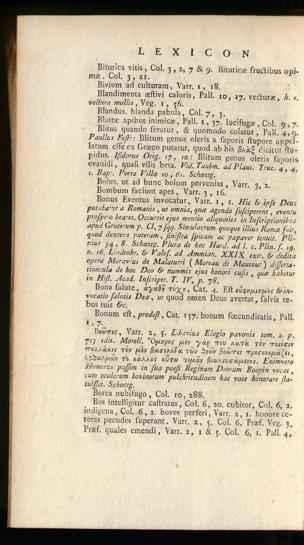 LEXICON
Biturica vitis, Col. 3, 2, 7 & 9. Bituricæ fructibus opi-
mæ, Col. 3, 21.
Bivium ad culturam, Varr. 1, 18.
Blandimenta æstivi caloris, Pall. 10, 17. vecturæ, h. e.
vectura mollis, Veg. 1, 56.
Blandus. blanda pabula, Col. 7, 3.
Blattæ apibus inimicæ, Pall. 1, 37. lucifugæ, Col. 9, 7.
Blitus quando seratur, & quomodo colatur, Pall. 4, 9.
Paullus Fest: Blitum genus oleris a saporis stupore appel-
latum esse ex Græco putatur, quod ab his βλὰξ dicitur stu-
pidus. Isidorus Orig. 17, 10: Blitum genus oleris saporis
evanidi, quasi vilis beta. Vid. Taubm. ad Plaut. Truc. 4, 4,
1. Bap. Porta Villæ 10, 61. Schœttg.
Bolus, ut ad hunc bolum pervenias, Varr. 3, 2.
Bombum faciunt apes, Varr. 3, 16.
Bonus Eventus invocatur, Varr. 1, 1. Hic & ipse Deus
putabatur a Romanis, ut omnia, quæ agenda susciperent, eventu
prospero bearet. Occurrit ejus mentio aliquoties in Inscriptionibus
apud Gruterum p. CI, 7 sqq. Simulacrum quoque illius Romæ fuit,
quod dextera pateram, sinistra spicam ac papaver tenuit. Pli-
nius 34, 8. Schœttg. Plura de hoc Hard. ad l. c. Plin. s. 19.
n. 16. Lindenbr. & Vales. ad Ammian. XXIX extr. & dedita
opera Moravus de Malaturri (Moreau de Mautour) disserta-
tiuncula de hoc Deo & nummis ejus honori cusis, quæ habetur
in Hist. Acad. Inscript. T. IV, p. 78.
Bona salute, ἀγαθῇ τύχῃ, Cat. 4. Est εὐφημισμὸς & in-
vocatio salutis Deæ, ut quod omen Deus avertat, salvis re-
bus tuis &c.
Bonum est, prodest, Cat. 157. bonum fœcunditatis, Pall.
1, 7.
Βοῶπις, Varr. 2, 5. Libanius Elogio pavonis tom. 2. p.
713 edit. Morell. Ὅμηρος μὲν γάρ που κατὰ τὴν ποίησιν
πολλάκις τὴν μὲν βασιλίδα τῶν θεῶν βοῶπιν προσονομάζει,
ὀφθαλμῶν τὸ κάλλος οὕτω τιμᾷν βουλευσάμενος. Enimvero
Homerus passim in sua poesi Reginam Deorum Boopin vocat,
cum oculorum bovinorum pulchritudinem hac voce honorare sta-
tuisset. Schœttg.
Borea nubifugo, Col. 10, 288.
Bos intelligitur castratus, Col. 6, 20. cubitor, Col. 6, 2.
indigena, Col. 6, 2. boves perferi, Varr. 2, 1. honore ce-
teras pecudes superant, Varr. 2, 5. Col. 6, Præf. Veg. 3,
Præf. quales emendi, Varr. 2, 1 & 5. Col. 6, 1. Pall. 4,